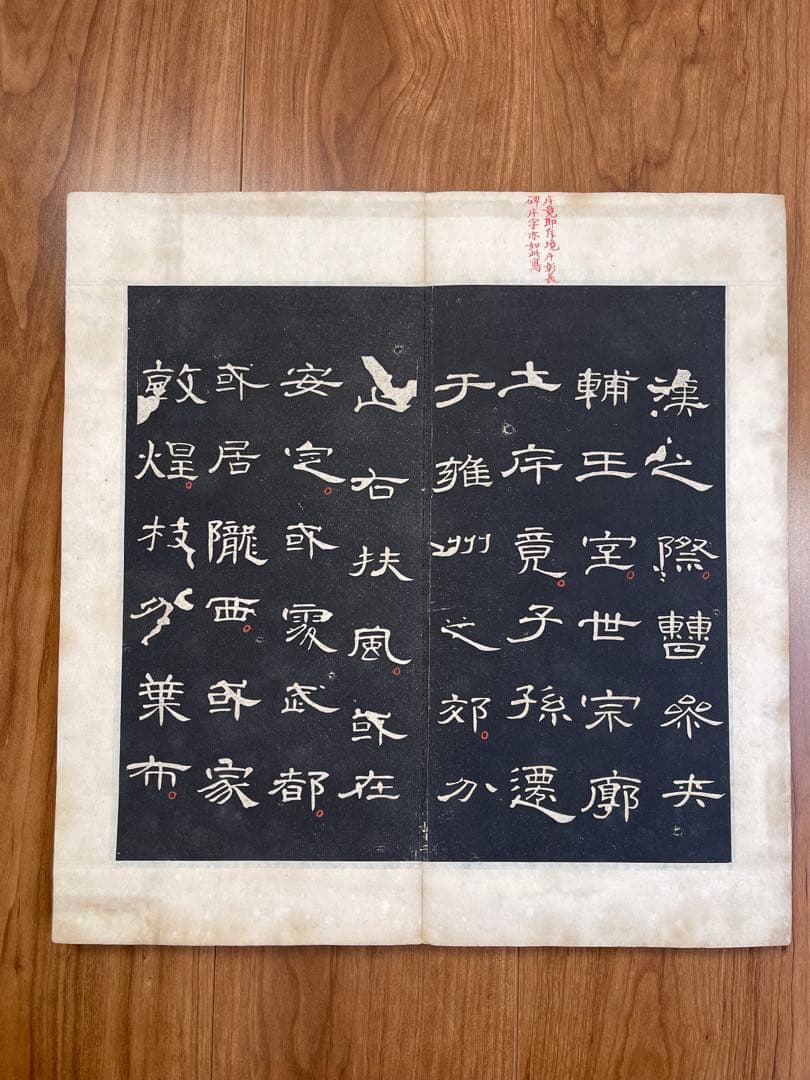 斥竟即斥境斥彰長
碑斥字亦如此寫
漢之際曹參夾
輔王室世宗廓
土斥竟子孫遷
于雍州之郊分
止右扶風或在
安定或處武都
或居隴西或家
敦煌枝分葉布